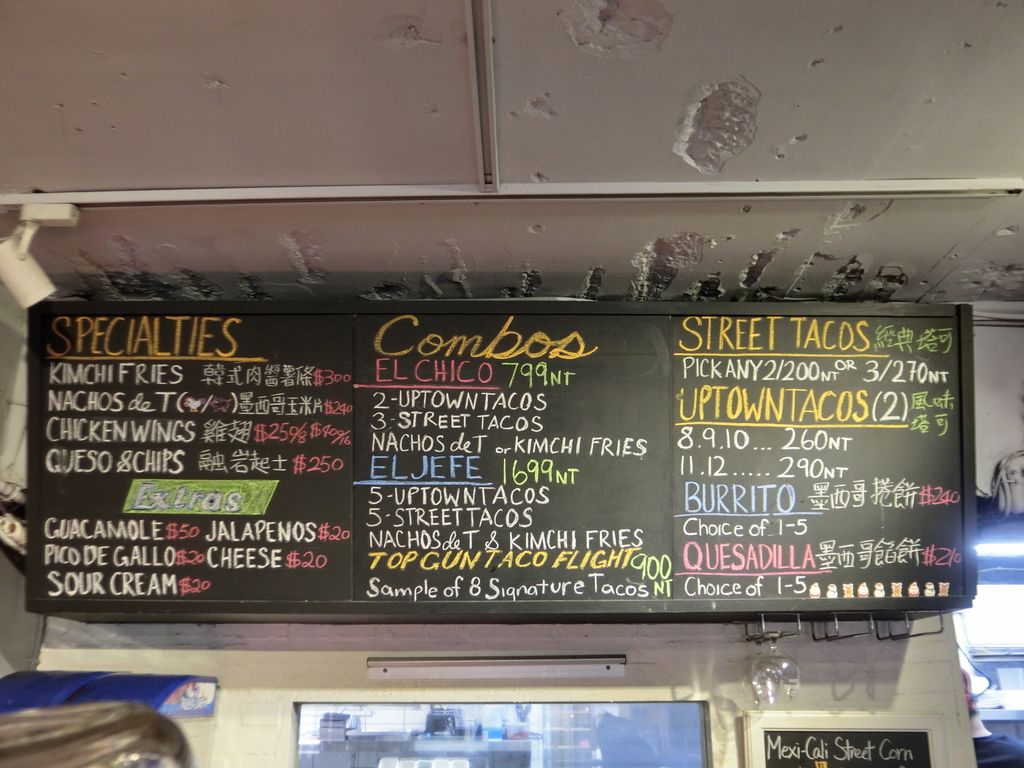 SPECIALTIES
KIMCHI FRIES 韓式肉醬薯條 $300
NACHOS de T ( / ) 墨西哥玉米片 $240
CHICKEN WINGS 雞翅 $25%
QUESO & CHIPS 融岩起士 $250
Extras
GUACAMOLE $50 JALAPENOS $20
PICO DE GALLO $20 CHEESE $20
SOUR CREAM $20
Combos
EL CHICO 799NT
2-UPTOWN TACOS
3-STREET TACOS
NACHOS de T or KIMCHI FRIES
EL JEFE 1699NT
5-UPTOWN TACOS
5-STREET TACOS
NACHOS de T & KIMCHI FRIES
TOP GUN TACO FLIGHT 900
Sample of 8 Signature Tacos NT
STREET TACOS 經典塔可
PICK ANY 2/200NT OR 3/270NT
UPTOWN TACOS (2) 風味
塔可
8.9.10... 260NT
11.12..... 290NT
BURRITO 墨西哥捲餅 $240
Choice of 1-5
QUESADILLA 墨西哥餡餅 $210
Choice of 1-5
Mexi-Cali Street Corn